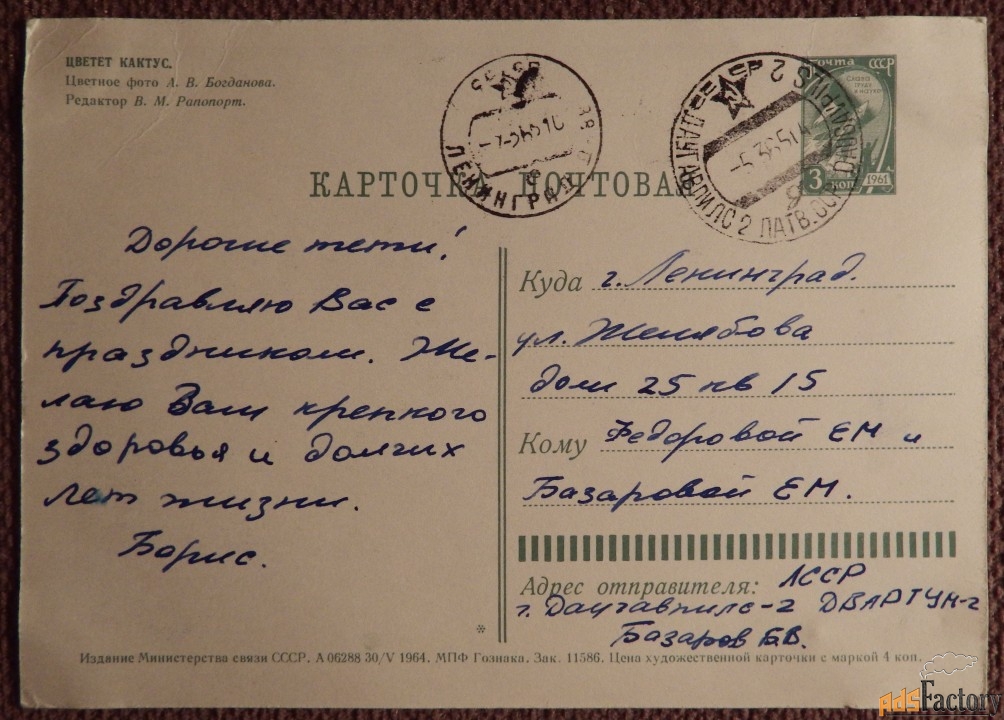 ЦВЕТЕТ КАКТУС.
Цветное фото А. В. Богданова.
Редактор В. М. Рапопорт.
ЛЕНИНГРАД
ДАУГАВПИЛС 2 ЛАТВ. ССР
почта СССР
СЛАВА
ТРУДУ
И НАУКЕ
3 коп
1961
КАРТОЧКА ПОЧТОВАЯ
Дорогие тети!
Поздравляю Вас с
праздником. Же-
лаю Вам крепкого
здоровья и долгих
лет жизни.
Борис.
Куда г. Ленинград.
ул. Желябова
дом 25 кв 15
Кому Федоровой ЕМ и
Базаровой ЕМ.
Адрес отправителя: ЛССР
г. Даугавпилс-2 ДВАРТУМ-2
Базаров Б.В.
*
Издание Министерства связи СССР. А 06288 30/V 1964. МПФ Гознака. Зак. 11586. Цена художественной карточки с маркой 4 коп.
AdsFactory